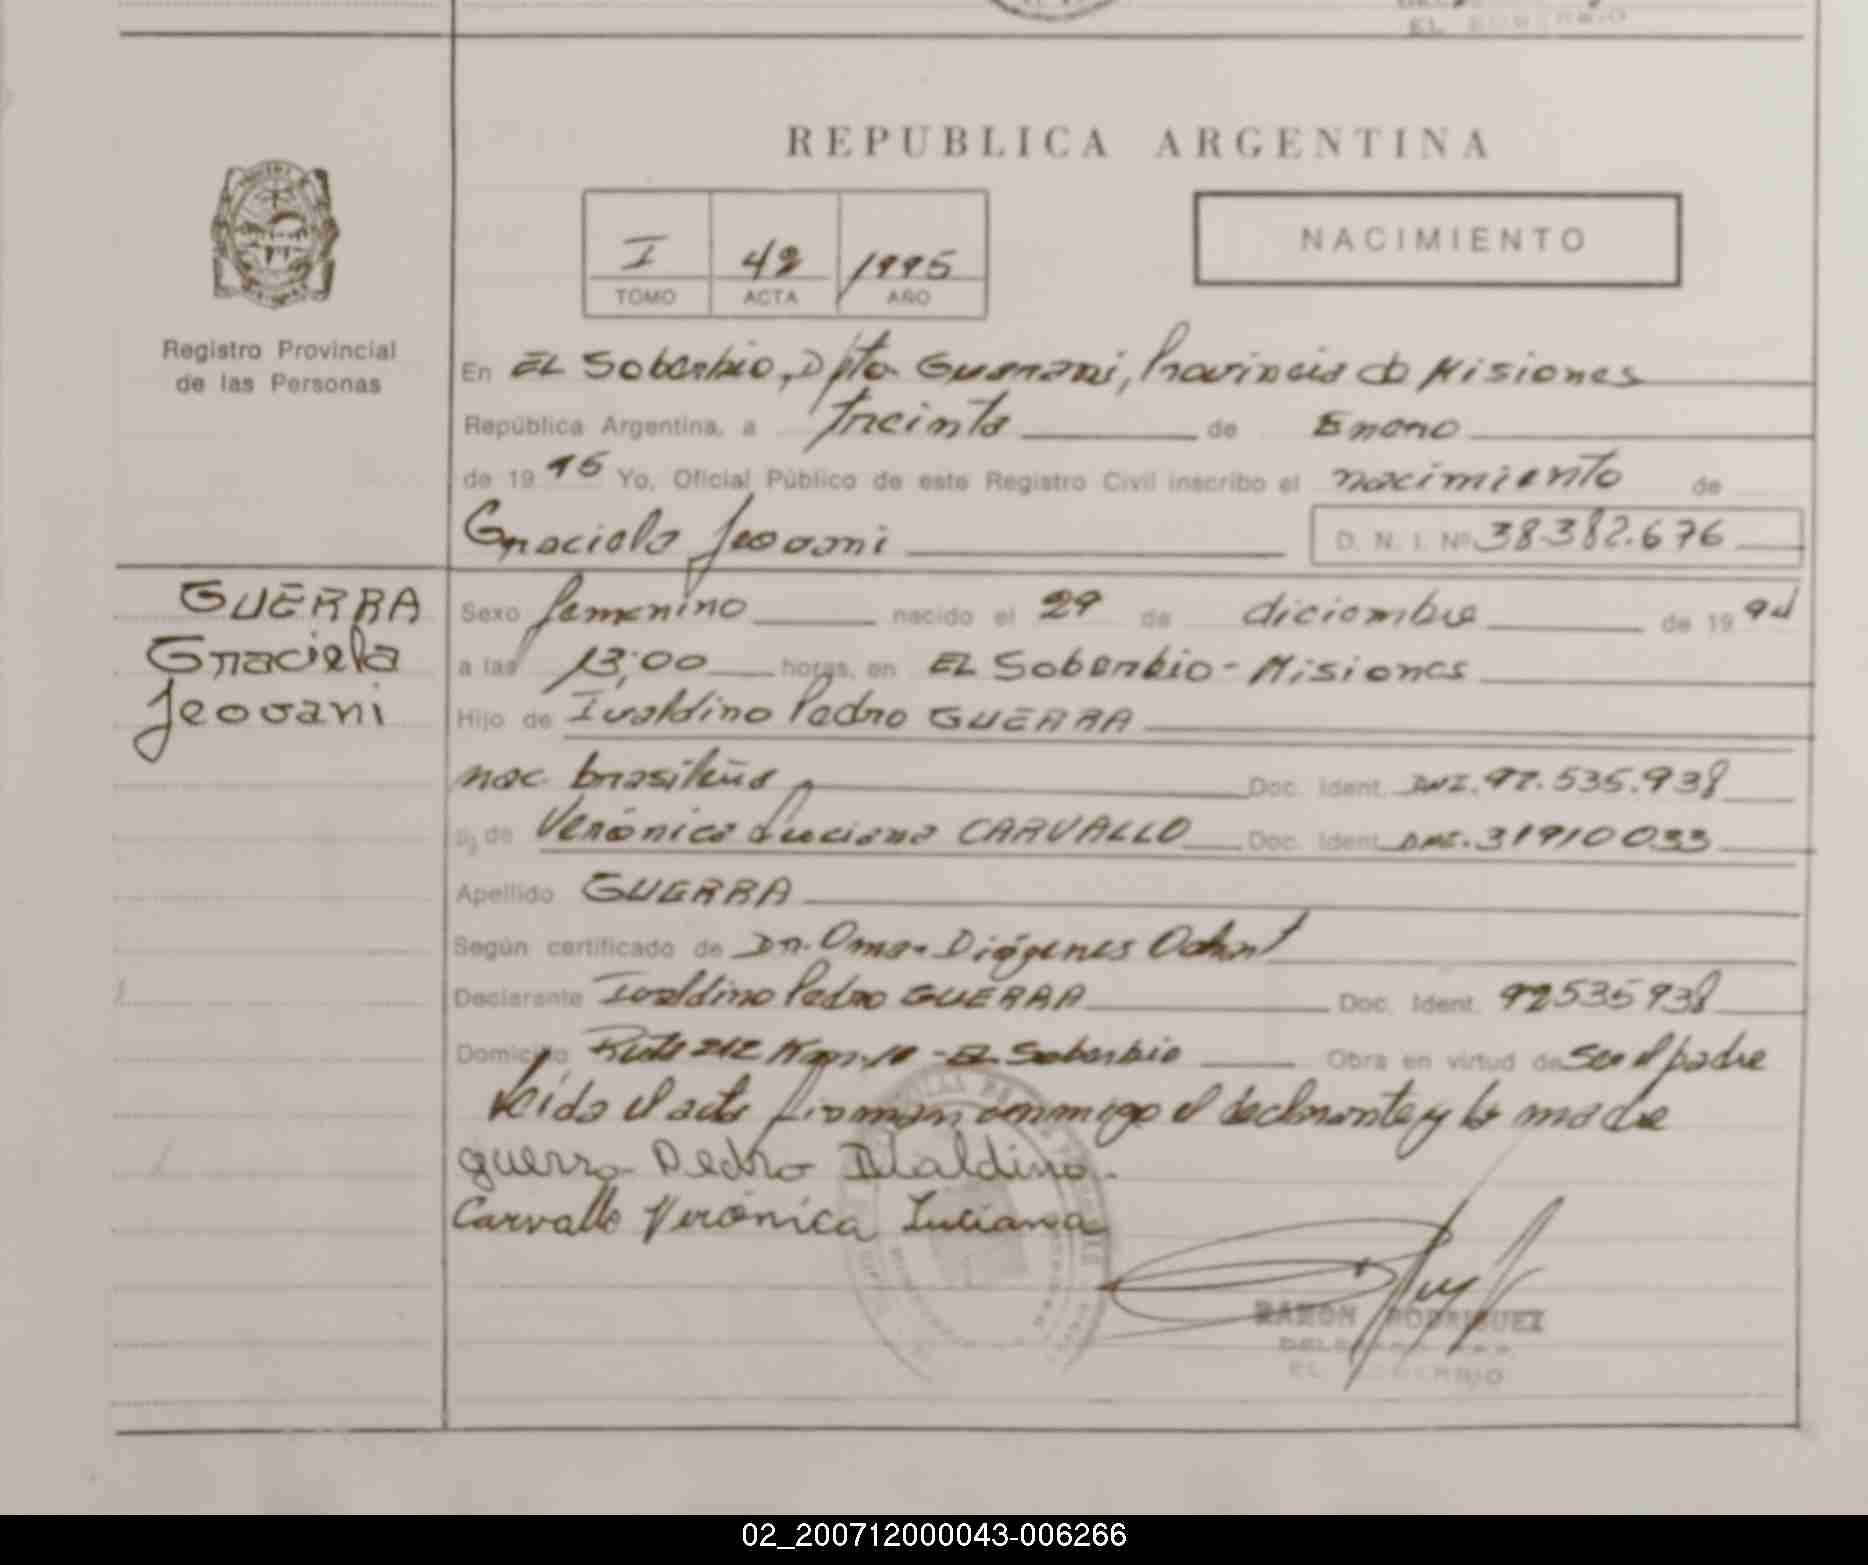 REPUBLICA ARGENTINA
I 42 1995
TOMO ACTA AÑO
NACIMIENTO
Registro Provincial
de las Personas
En EL Soberbio, Dpto. Guarani, Provincia de Misiones
República Argentina, a treinta de Enero
de 19 95 Yo, Oficial Público de este Registro Civil inscribo el nacimiento de
Graciela Jeovani D. N. I. Nº 38.382.676
GUERRA
Graciela
Jeovani
Sexo femenino nacido el 29 de diciembre de 19 94
a las 13:00 horas, en EL Soberbio - Misiones
Hijo de Ivaldino Pedro GUERRA
nac. brasileña Doc. Ident. DNI. 92.535.938
y de Verónica Luciana CARVALLO Doc. Ident. DNI. 31910033
Apellido GUERRA
Según certificado de Dr. Omar Diógenes
Declarante Ivaldino Pedro GUERRA Doc. Ident. 92535938
Domicilio Ruta 212 Km. 10 - EL Soberbio Obra en virtud de ser el padre
Leída el acta firman conmigo el declarante y la madre
guerra Pedro
Carvallo Verónica Luciana
RAMON RODRIGUEZ
EL SOBERBIO
02_200712000043-006266